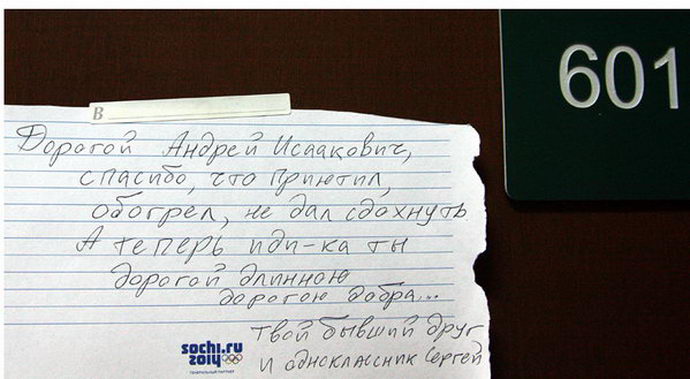 601
B
Дорогой Андрей Исаакович,
спасибо, что приютил,
обогрел, не дал сдохнуть.
А теперь иди-ка ты
дорогой длинною
дорогою добра...
твой бывший друг
и одноклассник Сергей
sochi.ru
2014
ГЕНЕРАЛЬНЫЙ ПАРТНЕР